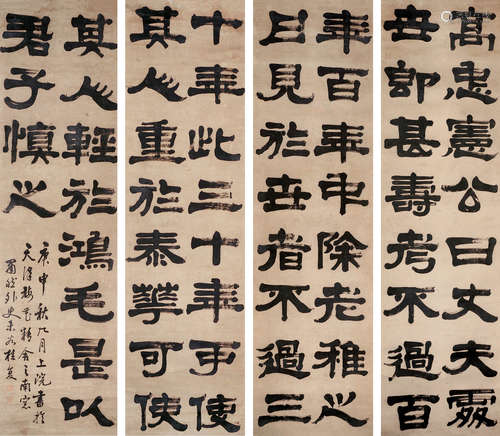 高忠憲公曰丈夫處
世即甚壽考不過百
年百年中除老稚之
日見於世者不過三
十年此三十年可使
其人重於泰華可使
其人輕於鴻毛是以
君子慎之
庚申秋九月上浣書於
天津梅花精舍之南窗
外史